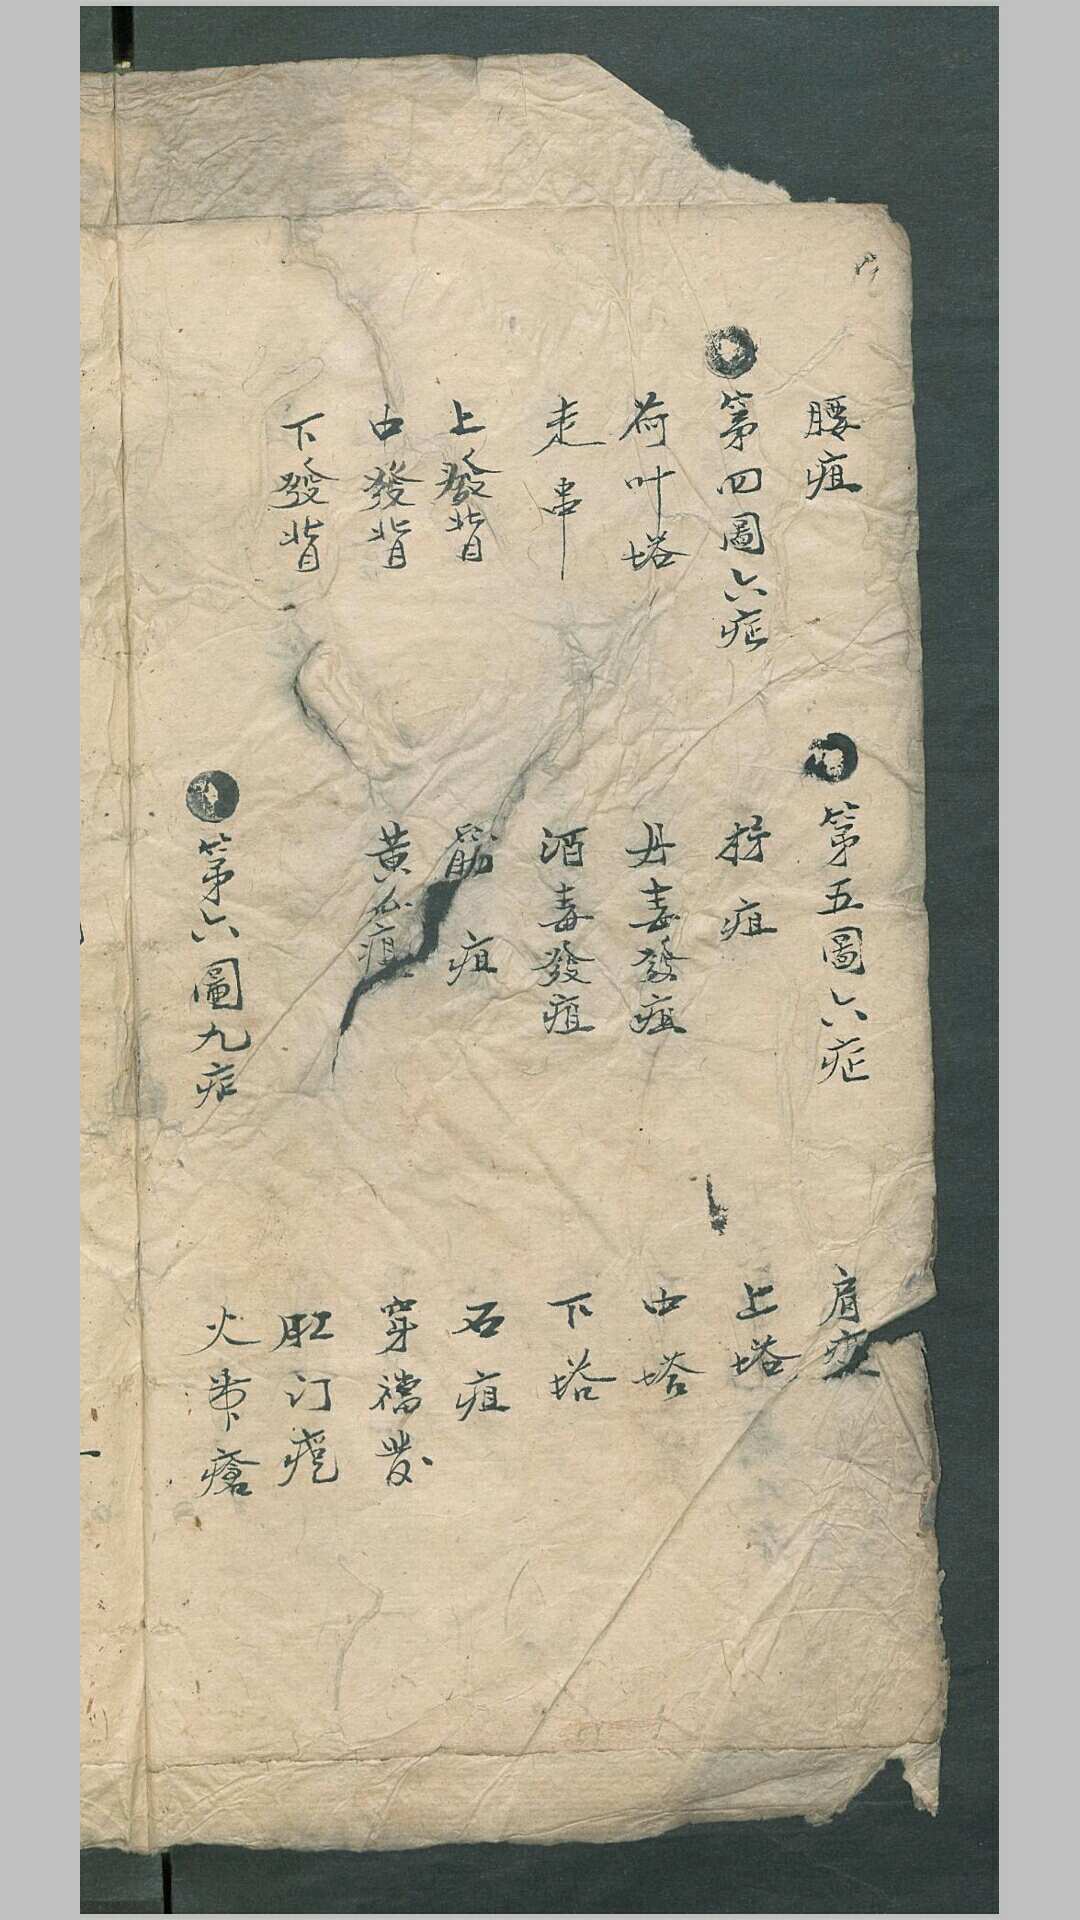 腰疽
第四圖六症
荷叶塔
走串
上發背
中發背
下發背
第五圖六症
疽
丹毒發疽
酒毒發疽
疽
黃瓜疽
第六圖九症
肩
上塔
中塔
下塔
石疽
穿襠發
肛汀
火串瘡